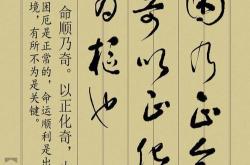 困乃正命
奇以正化
为枢也
命顺乃奇。以正化奇，
困厄是正常的，命运顺利是出
境，有所不为是关键。